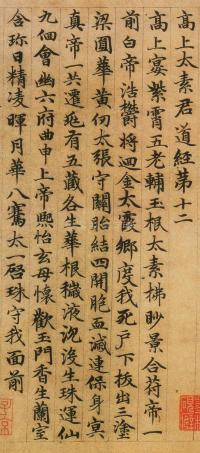 高上太素君道經第十二
高上宴紫霄五老輔玉根太素拂眇景合符帝一
前白帝浩鬱將迴金太霞鄉度我死戶下拔出三塗
梁圓華黃仞太張守關胎結四開胞血滅連保身冥
真帝一共遷延有五藏各生華根穢液沉沒生珠運仙
九個會幽六府曲申上帝熙怡玄母懷歡玉門香生蘭室
含珎日精凌暉月華八騫太一啓珠守我面前